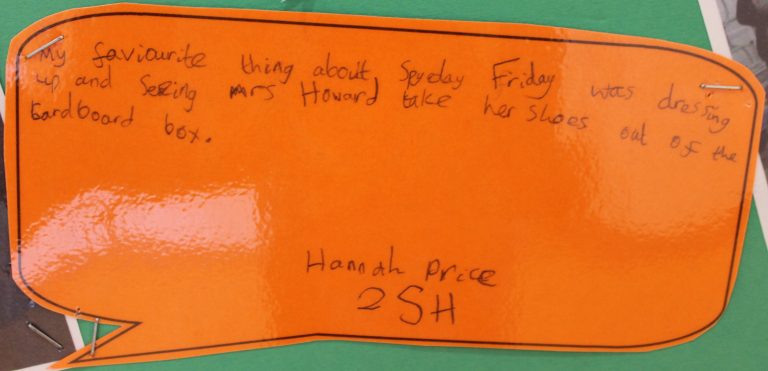 My faviourite thing about Speday Friday was dressing
up and seeing mrs Howard take her shoes out of the
Cardboard box.
Hannah price
2SH